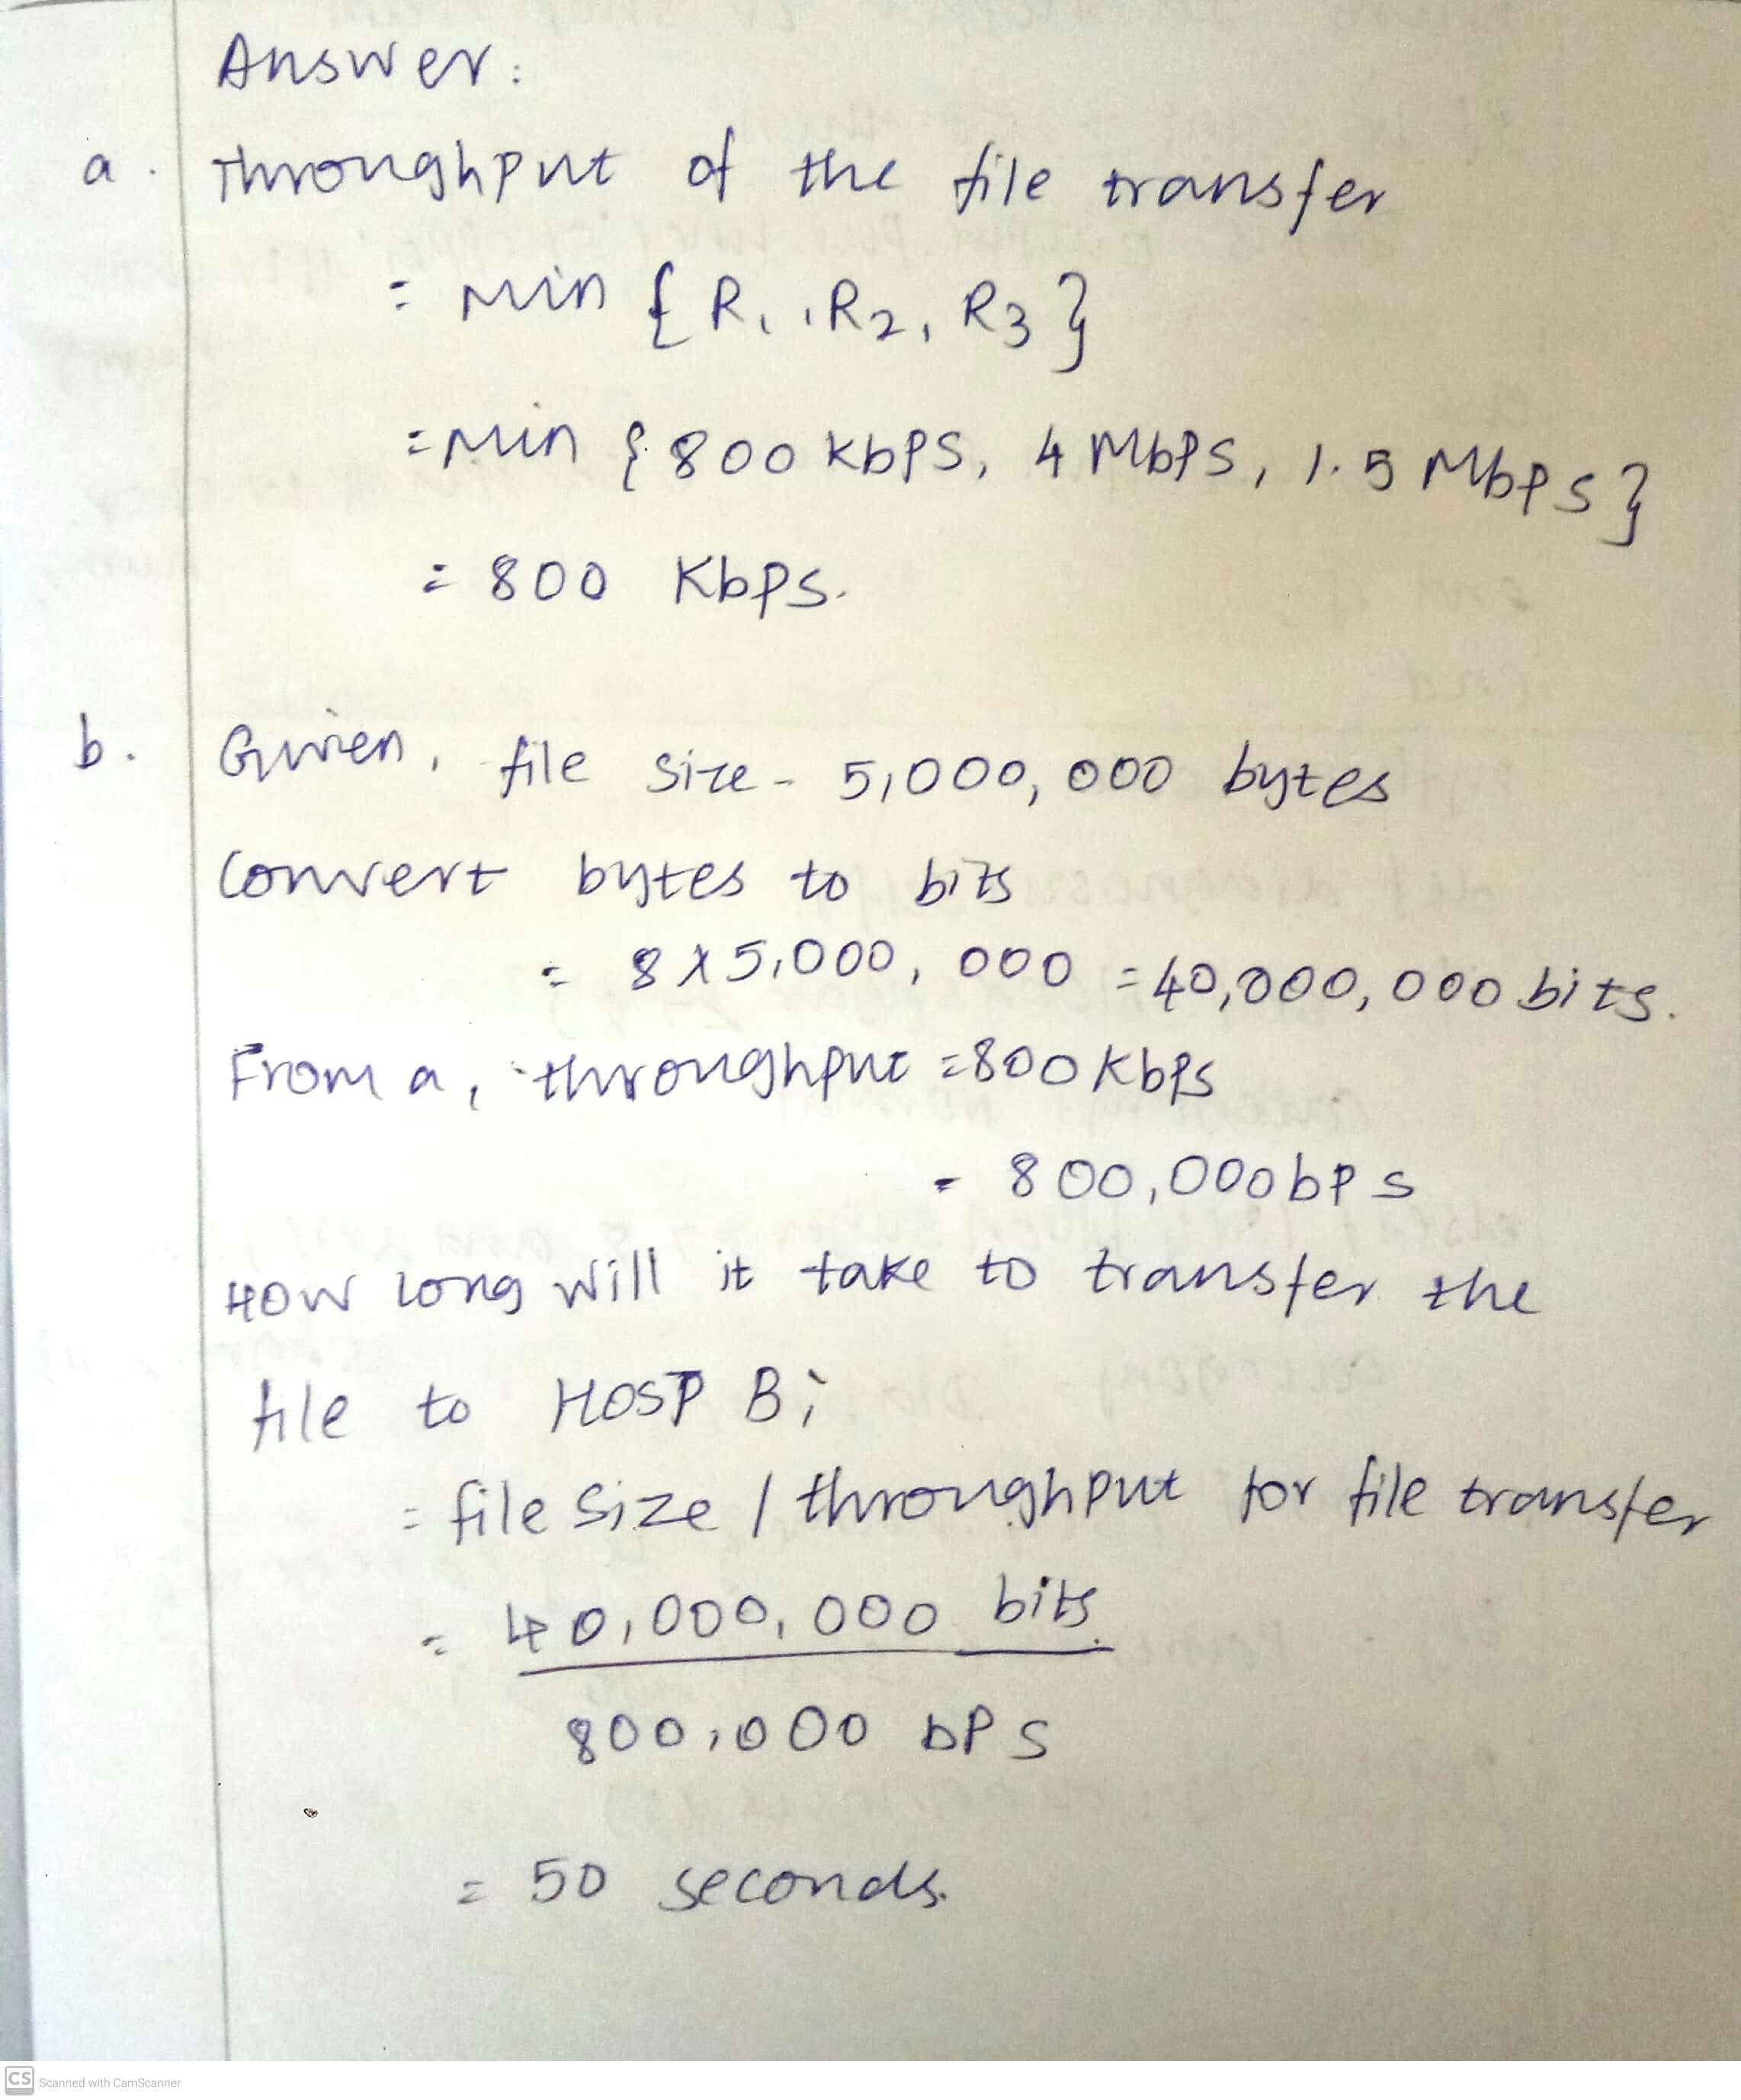 Answer:
a. Throughput of the file transfer
= Min { R1, R2, R3 }
= Min { 800 kbps, 4 Mbps, 1.5 Mbps }
= 800 Kbps.
b. Given, file size - 5,000,000 bytes
Convert bytes to bits
= 8 x 5,000,000 = 40,000,000 bits.
From a, throughput = 800 Kbps
= 800,000 bps
How long will it take to transfer the
file to HOSP B;
= file size / throughput for file transfer
= 40,000,000 bits.
800,000 bps
= 50 seconds.
CS Scanned with CamScanner